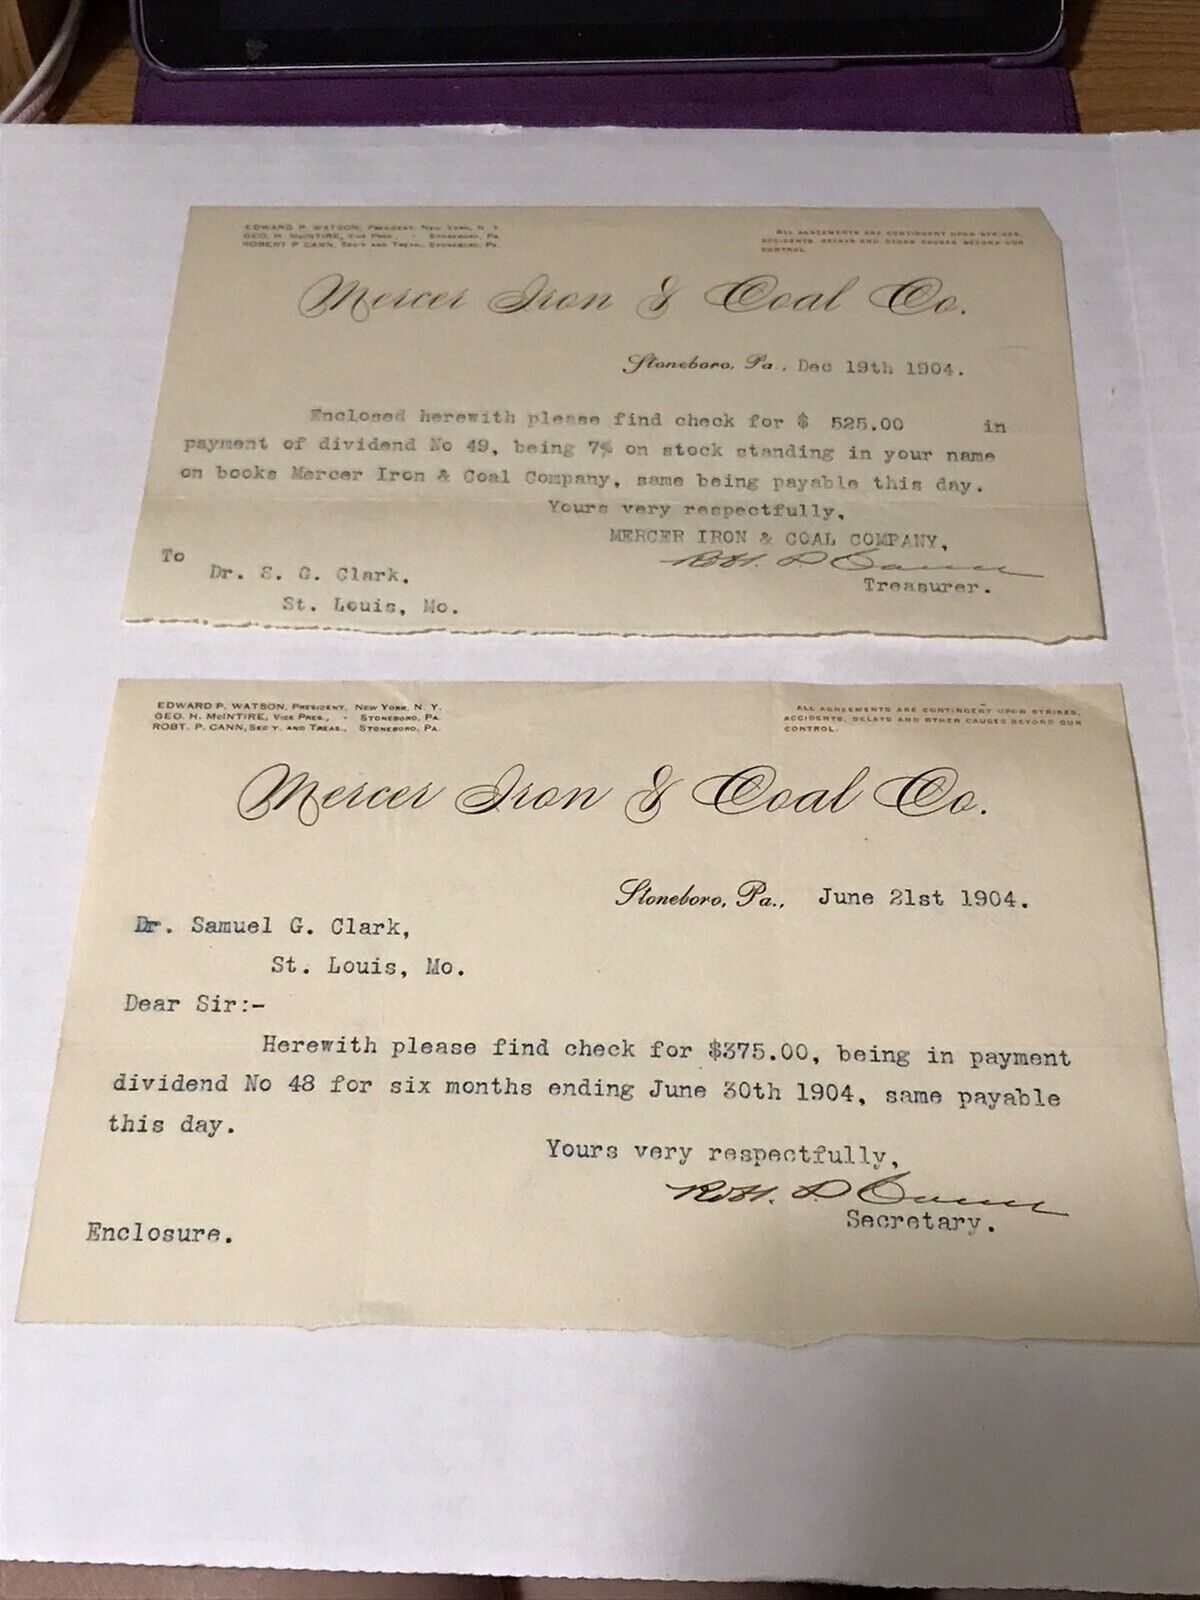 EDWARD P. WATSON, PRESIDENT, NEW YORK, N. Y.
GEO. H. McINTIRE, VICE PRES., - STONEBORO, PA.
ROBERT P CANN, SEC'Y AND TREAS., STONEBORO, PA.
ALL AGREEMENTS ARE CONTINGENT UPON STRIKES,
ACCIDENTS, DELAYS AND OTHER CAUSES BEYOND OUR
CONTROL.
Mercer Iron & Coal Co.
Stoneboro, Pa., Dec 19th 1904.
Enclosed herewith please find check for $ 525.00 in
payment of dividend No 49, being 7% on stock standing in your name
on books Mercer Iron & Coal Company, same being payable this day.
Yours very respectfully,
MERCER IRON & COAL COMPANY,
Robt. P Cann
Treasurer.
To
Dr. S. G. Clark,
St. Louis, Mo.
EDWARD P. WATSON, PRESIDENT, NEW YORK, N. Y.
GEO. H. McINTIRE, VICE PRES., - STONEBORO, PA.
ROBT. P. CANN, SEC'Y. AND TREAS., STONEBORO, PA.
ALL AGREEMENTS ARE CONTINGENT UPON STRIKES,
ACCIDENTS, DELAYS AND OTHER CAUSES BEYOND OUR
CONTROL.
Mercer Iron & Coal Co.
Stoneboro, Pa., June 21st 1904.
Dr. Samuel G. Clark,
St. Louis, Mo.
Dear Sir:-
Herewith please find check for $375.00, being in payment
dividend No 48 for six months ending June 30th 1904, same payable
this day.
Yours very respectfully,
Robt. P Cann
Secretary.
Enclosure.